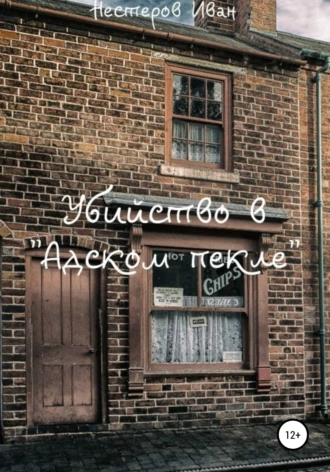 Нестеров Иван
Убийство в
"Адском пекле"
HOT
CHIPS
12+